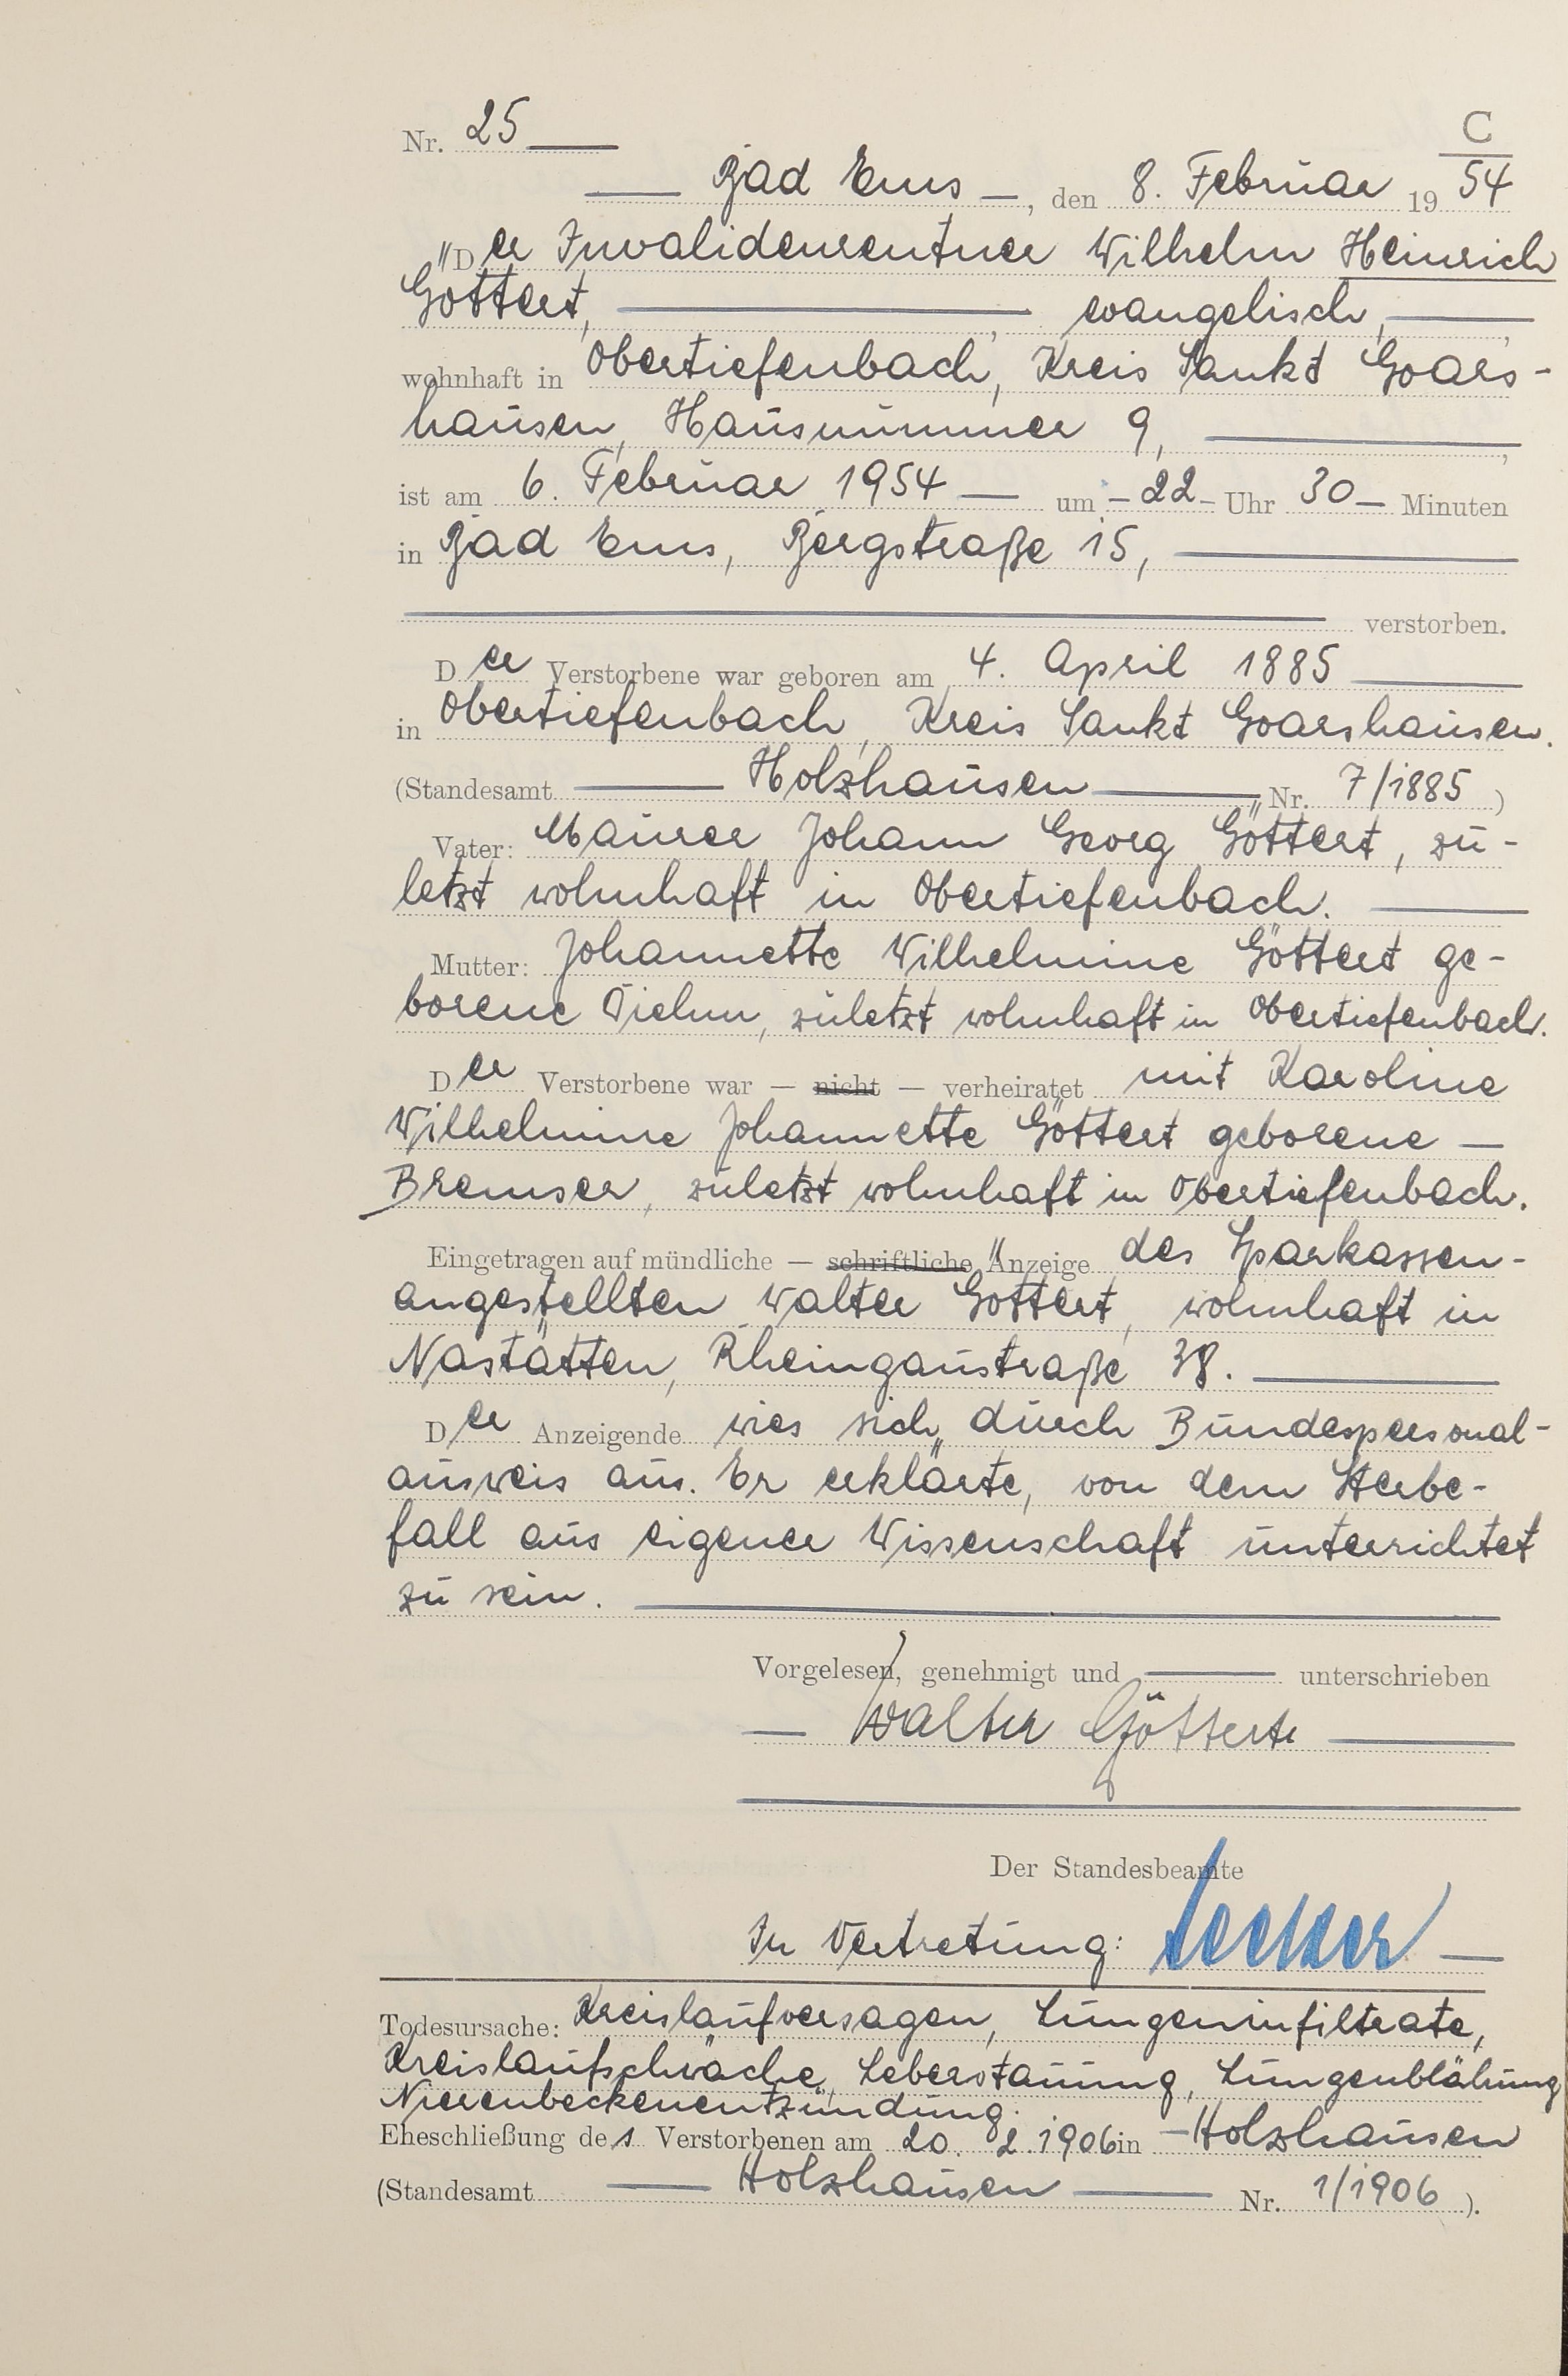 Nr. 25
C
Bad Ems, den 8. Februar 1954
Der Invalidenrentner Wilhelm Heinrich
Göttert, evangelisch,
wohnhaft in Obertiefenbach, Kreis Sankt Goars-
hausen, Hausnummer 9,
ist am 6. Februar 1954 um 22 Uhr 30 Minuten
in Bad Ems, Bergstraße 15,
verstorben.
Der Verstorbene war geboren am 4. April 1885
in Obertiefenbach, Kreis Sankt Goarshausen.
(Standesamt Holzhausen Nr. 7/1885)
Vater: Maurer Johann Georg Göttert, zu-
letzt wohnhaft in Obertiefenbach.
Mutter: Johannette Wilhelmine Göttert ge-
borene Diehm, zuletzt wohnhaft in Obertiefenbach.
Der Verstorbene war — nicht — verheiratet mit Karoline
Wilhelmine Johannette Göttert geborene —
Bremser, zuletzt wohnhaft in Obertiefenbach.
Eingetragen auf mündliche — schriftliche Anzeige des Sparkassen-
angestellten Walter Göttert, wohnhaft in
Nastätten, Rheingaustraße 38.
Der Anzeigende wies sich durch Bundespersonal-
ausweis aus. Er erklärte, von dem Sterbe-
fall aus eigener Wissenschaft unterrichtet
zu sein.
Vorgelesen, genehmigt und unterschrieben
Walter Göttert
Der Standesbeamte
In Vertretung:
Todesursache: Kreislaufversagen, Lungeninfiltrate,
Kreislaufschwäche, Leberstauung, Lungenblähung
Nierenbeckenentzündung.
Eheschließung des Verstorbenen am 20. 2. 1906 in Holzhausen
(Standesamt Holzhausen Nr. 1/1906).